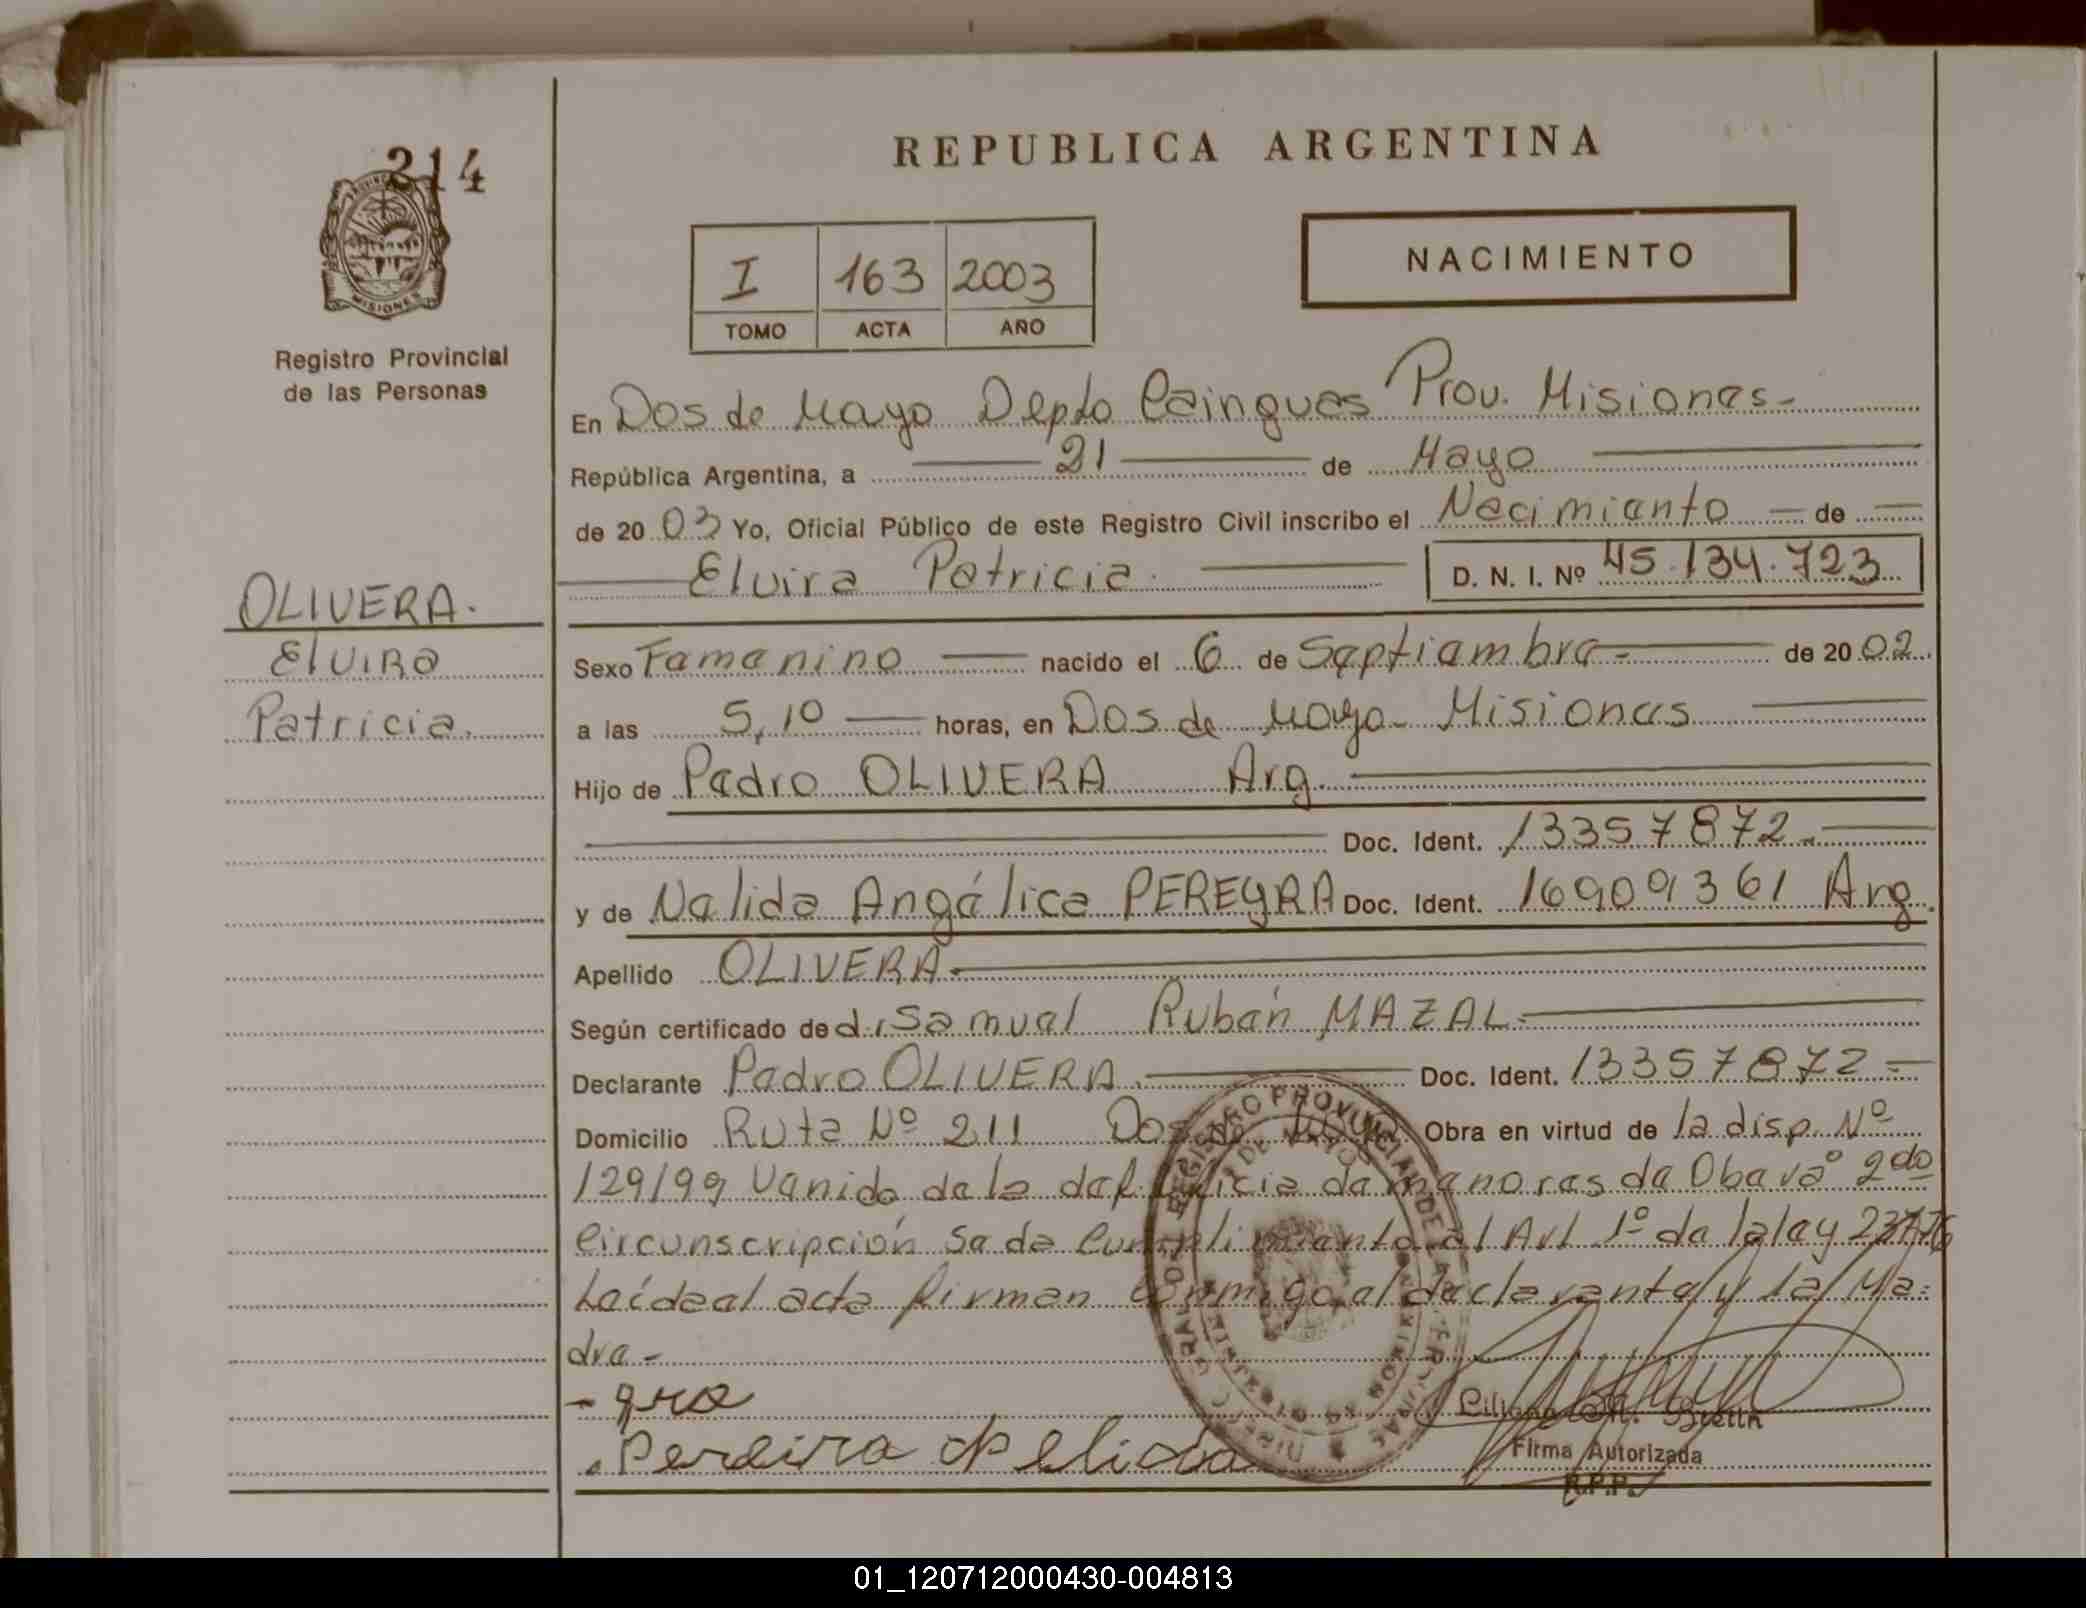 214
REPUBLICA ARGENTINA
NACIMIENTO
I 163 2003
TOMO ACTA AÑO
MISIONES
Registro Provincial
de las Personas
En Dos de Mayo Depto Cainguas Prov. Misiones-
República Argentina, a 21 de Mayo
de 20 03 Yo, Oficial Público de este Registro Civil inscribo el Nacimiento de
Elvira Patricia. D. N. I. Nº 45.134.723
OLIVERA.
Elvira
Patricia.
Sexo Femenino nacido el 6 de Septiembre- de 20 02
a las 5,10 horas, en Dos de Mayo- Misiones
Hijo de Pedro OLIVERA Arg.
Doc. Ident. 13357872.
y de Nelida Angélica PEREYRA Doc. Ident. 16909361 Arg.
Apellido OLIVERA.
Según certificado de dr Samuel Rubén MAZAL.
Declarante Pedro OLIVERA. Doc. Ident. 13357872
Domicilio Ruta Nº 211 Dos de Mayo. Obra en virtud de la disp. Nº
129/99 Venida de la def. Oficia de menores de Oberá 2do
Circunscripción Se da Cumplimiento al Art 1º de la ley
Leída el acta firman conmigo, el declarante y la Ma=
dre-
Pereira Nelida
Firma Autorizada
R.P.P.
01_120712000430-004813